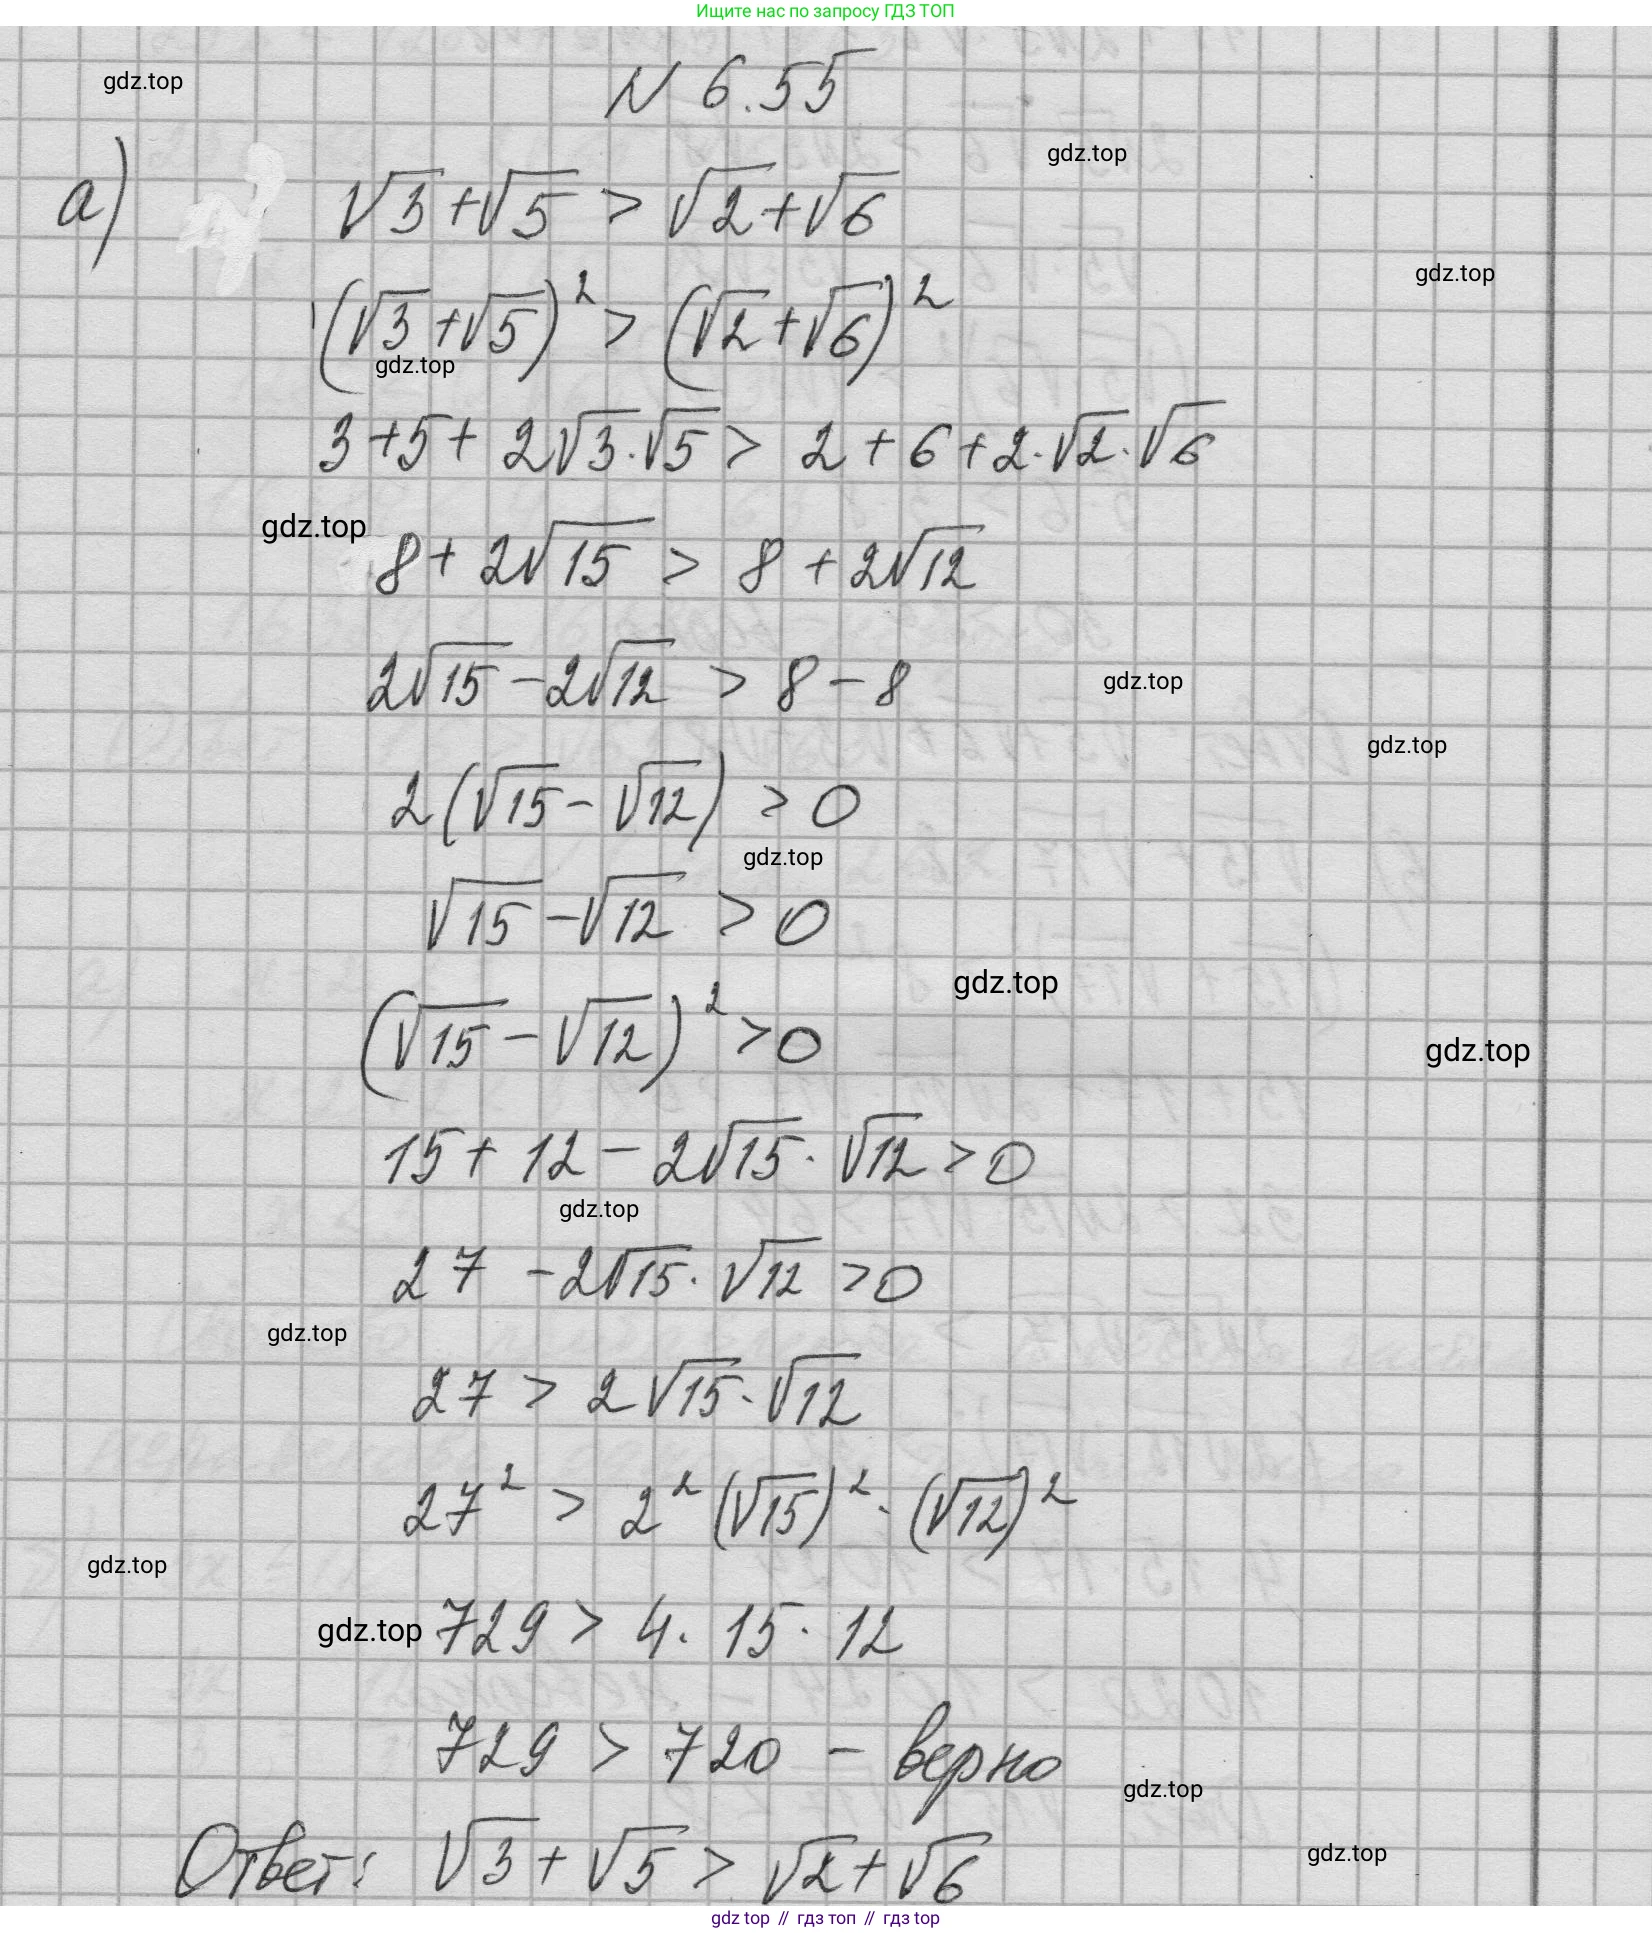 Ищите нас по запросу ГДЗ ТОП
N 6.55
gdz.top
gdz.top
а) √3+√5 > √2+√6
gdz.top
(√3+√5)² > (√2+√6)²
gdz.top
3+5+2√3·√5 > 2+6+2·√2·√6
gdz.top
8+2√15 > 8+2√12
2√15-2√12 > 8-8
gdz.top
gdz.top
2(√15-√12) > 0
gdz.top
√15-√12 > 0
gdz.top
(√15-√12)² > 0
gdz.top
15+12-2√15·√12 > 0
gdz.top
27-2√15·√12 > 0
gdz.top
27 > 2√15·√12
27² > 2²(√15)²·(√12)²
gdz.top
gdz.top
729 > 4·15·12
729 > 720 - верно
gdz.top
Ответ: √3+√5 > √2+√6
gdz.top
gdz top // гдз топ // gdz.top